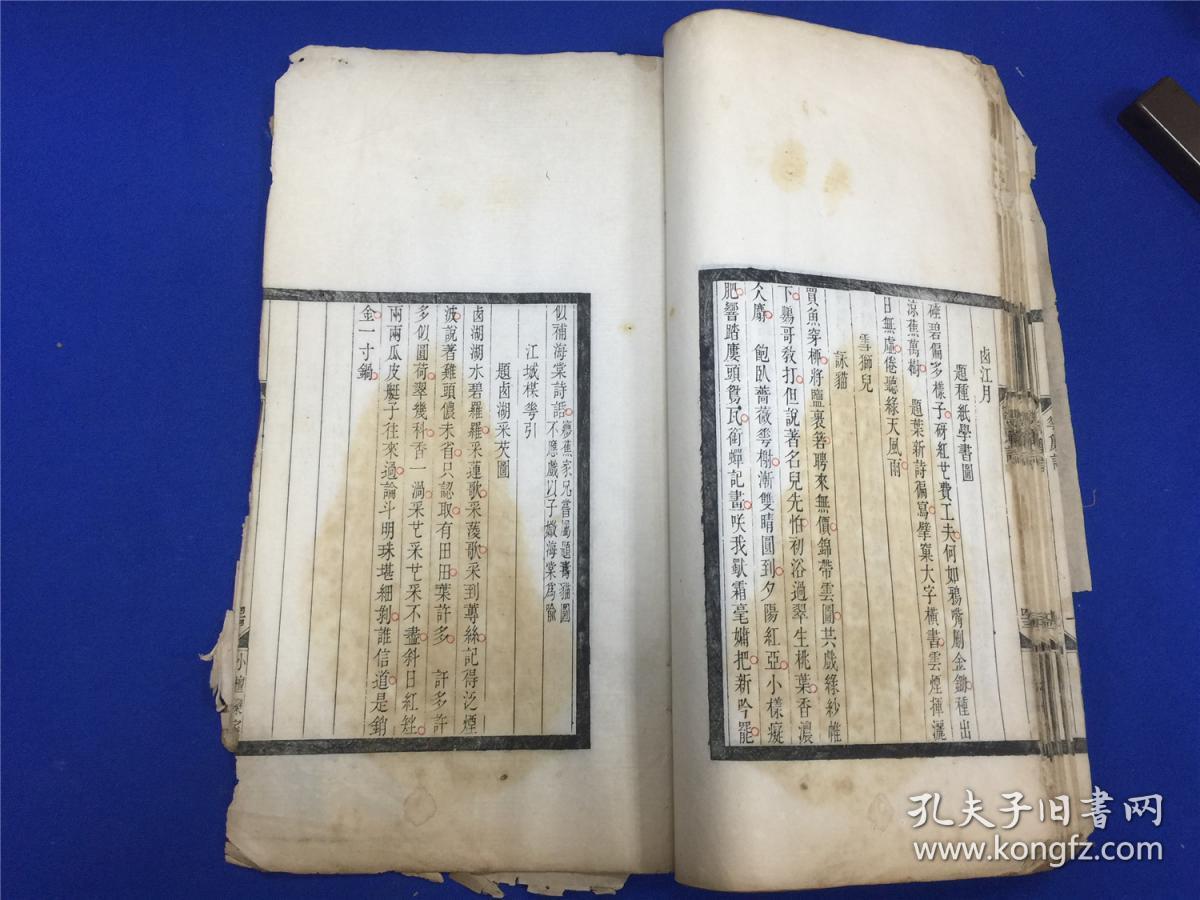 卤江月
題種紙學書圖
硾碧偏多樣子砑紅廿費工夫何如鴉觜劚金鋤種出
涼蕉萬樹 題葉新詩偏寫擘窠大字橫書雲煙揮灑
日無虛倦聽綠天風雨
雪獅兒
詠貓
買魚穿柳將鹽裹箬聘來無價錦帶雲圖共戲綠紗帷
下鸚哥敎打但說著名兒先怕初浴過翠生桃葉香濃
仌麝 飽臥薔薇雩榭漸雙睛圓到夕陽紅亞小樣癡
肥響踏屢頭鴛瓦銜蟬記畫咲我歗霜毫慵把新吟罷
似補海棠詩話瘦蕉家兄嘗屬題
不應戲以子媺海棠爲喩
江城楳雩引
題卤湖采芡圖
卤湖湖水碧羅羅采蓮歌采蔆歌采到蓴絲記得泛煙
波說著雞頭儂未省只認取有田田葉許多 許多許
多似圓荷翠幾科香一渦采廿采廿采不盡斜日紅矬
兩兩瓜皮艇子往來過論斗明珠堪細剝誰信道是銷
金一寸鍋
小檀欒室
孔夫子旧书网
www.kongfz.com